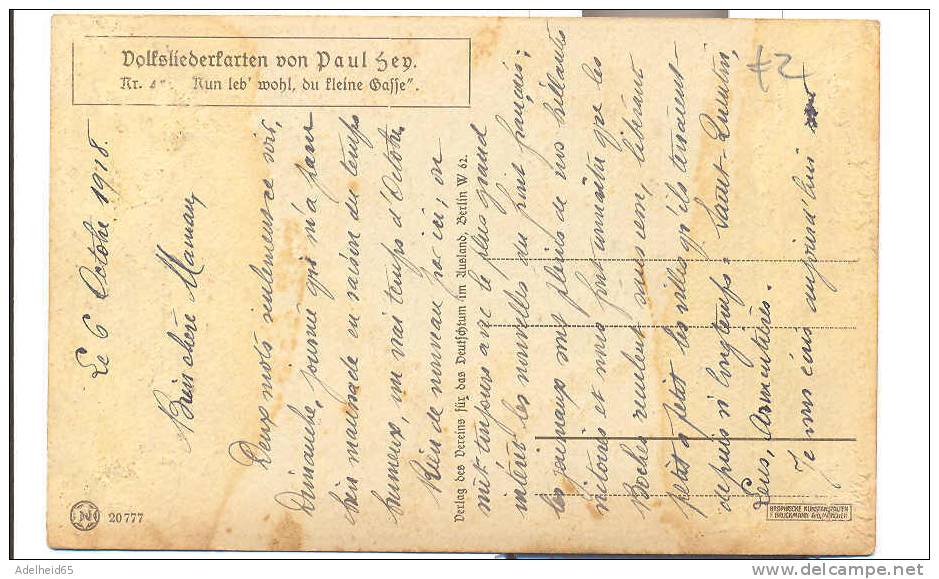 Volksliederkarten von Paul Hey.
Nr. 4 Nun leb' wohl, du kleine Gasse".
42
Le 6 Octobre 1918.
Bien chère Maman,
Deux mots seulement ce soir,
Dimanche, journée qui m'a paru
bien maussade en raison du temps
brumeux, un vrai temps d'Octobre.
Rien de nouveau par ici; on
suit toujours avec le plus grand
intérêt les nouvelles du front français;
les journaux sont pleins de nos brillantes
victoires et nous font connaître que les
Boches reculent sans cesse, libérant
petit à petit les villes qu'ils tenaient
depuis si longtemps: Saint-Quentin,
Lens, Armentières.
Je vous écris aujourd'hui
Verlag des Vereins für das Deutschtum im Ausland, Berlin W 62.
20777
GRAPHISCHE KUNSTANSTALTEN
F. BRUCKMANN A.G. MÜNCHEN
Adelheid65
www.delcampe.net